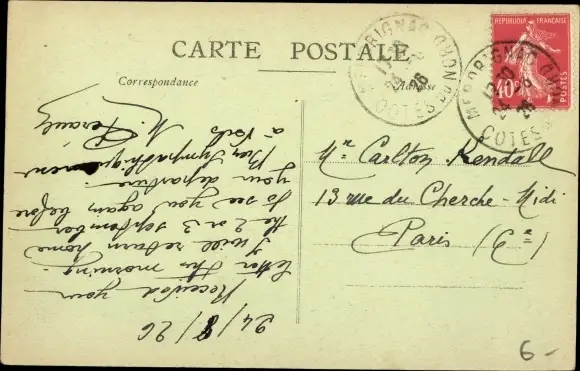 CARTE POSTALE
Correspondance
Adresse
REPUBLIQUE FRANÇAISE
40c
POSTES
MERDRIGNAC
COTES DU NORD
26
MERDRIGNAC
COTES
26
24/8/26
Received your
letter this morning.
I will return home
the 2 or 3 september
to see you again before
your departure.
Bien sympathiquement
à vous
Mr Carlton Kendall
13 rue du Cherche-Midi
Paris
6-